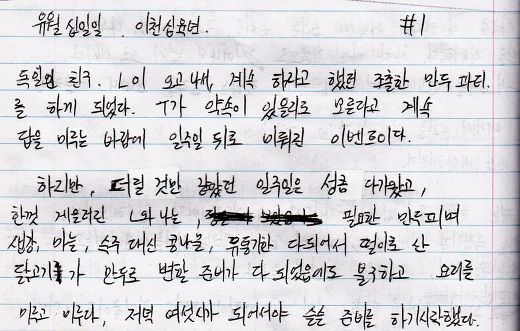 유월 십일일. 이천십육년. #1
독일인 친구. L이 오고 나서, 계속 하자고 했던 조촐한 만두 파티
를 하게 되었다. T가 약속이 있을지도 모른다고 계속
답을 미루는 바람에 일주일 뒤로 미뤄진 이벤트이다.
하지만, 더딜 것만 같았던 일주일은 성큼 다가왔고,
한껏 게을러진 L와 나는 필요한 만두피며
생강, 마늘, 숙주 대신 콩나물, 유통기한 다되어서 떨이로 산
닭고기가 만두로 변할 준비가 다 되었음에도 불구하고 요리를
미루고 미루다, 저녁 여섯시가 되어서야 슬슬 준비를 하기시작했다.